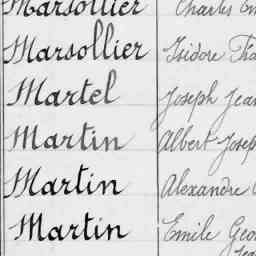 Marsollier Charles
Marsollier Isidore
Martel Joseph Jean
Martin Albert Joseph
Martin Alexandre
Martin Emile